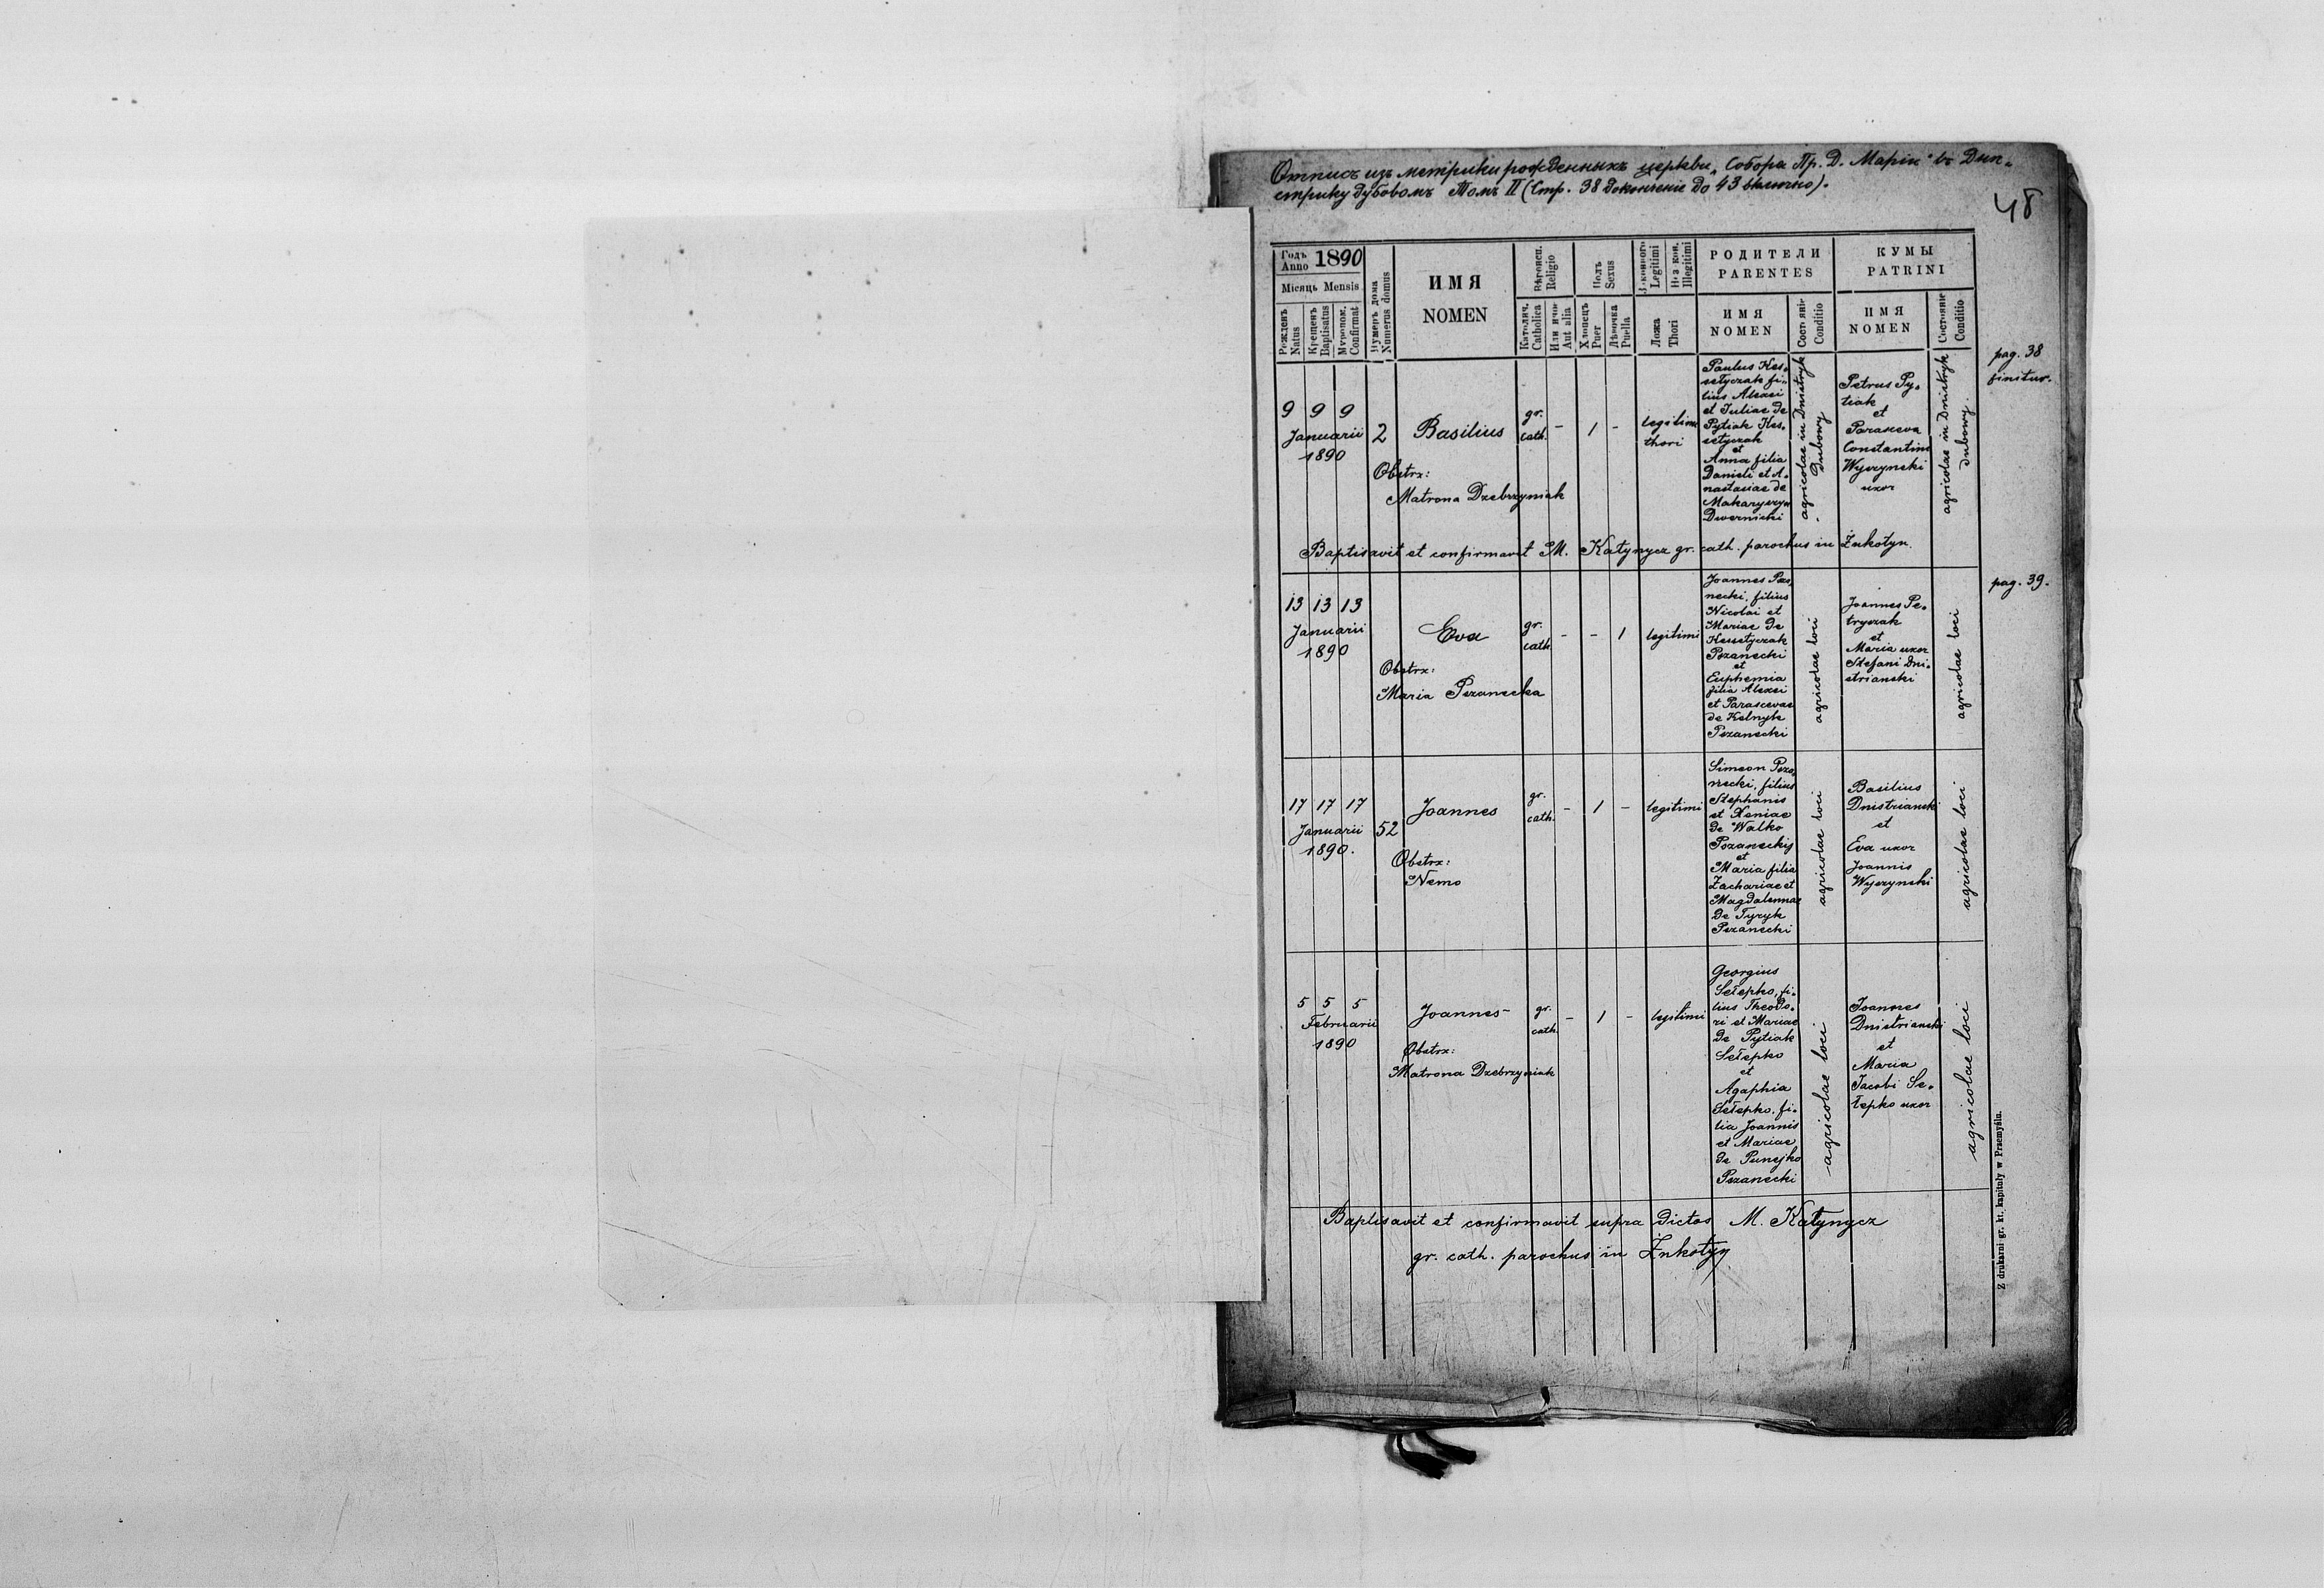 Отпись изъ метрики рожденныхъ церкви „Собора Пр. Д. Маріи“ въ Дни-
стрику дубовомъ Томъ II (Стр. 38 докончение до 43 включно).
48
Годъ Anno 1890
Місяць Mensis
Рожденъ Natus
Крещенъ Baptisatus
Муропом. Confirmat
Нумеръ дома Numerus domus
ИМЯ
NOMEN
Religio
Католич. Catholica
Или ичое Aut alia
Полъ Sexus
Хлопецъ Puer
Дѣвочка Puella
Законного Legitimi
Illegitimi
Ложа Thori
РОДИТЕЛИ
PARENTES
ИМЯ
NOMEN
Состояніе Conditio
КУМЫ
PATRINI
ИМЯ
NOMEN
Состояніе Conditio
pag. 38
finitur.
9 9 9
Januarii
1890
2
Basilius
gr.
cath.
-
1
-
legitimi
thori
Obstrx:
Matrona Dzebrzyniak
Paulus Kes-
setyczak fi-
lius Alexii
et Juliae de
Pytiak Kes-
setyczak
et
Anna filia
Danieli et A-
nastasiae de
Makaryczyn
Dwernicki
agricolae in Dnistryk
Dubowy
Petrus Py-
tiak
et
Parasceva
Constantini
Wyczynski
uxor
agricolae in Dnistryk
Dubowy.
Baptisavit et confirmavit M. Katynycz gr. cath. parochus in Żukotyn.
pag. 39.
13 13 13
Januarii
1890
Eva
gr.
cath
-
-
1
legitimi
Obstrx:
Maria Pzanecka
Joannes Pza-
necki, filius
Nicolai et
Mariae de
Kessetyczak
Pzanecki
et
Euphemia
filia Alexii
et Parascevae
de Kelnyk
Pzanecki
agricolae loci
Joannes Pe-
tryczak
et
Maria uxor
Stefani Dni-
strianski
agricolae loci
17 17 17
Januarii
1890.
52
Joannes
gr.
cath.
-
1
-
legitimi
Obstrx:
Nemo
Simeon Pza-
necki, filius
Stephanis
et Xeniae
de Walko
Pzanecki
et
Maria filia
Zachariae et
Magdalennae
de Tyzyk
Pzanecki
agricolae loci
Basilius
Dnistrianski
et
Eva uxor
Joannis
Wyczynski
agricolae loci
5 5 5
Februarii
1890
Joannes
gr.
cath
-
1
-
legitimi
Obstrx:
Matrona Dzebrzyniak
Georgius
Sełepko, fi-
lius Theodo-
ri et Mariae
de Pytiak
Sełepko
et
Agaphia
Sełepko, fi-
lia Joannis
et Mariae
de Punejko
Pzanecki
agricolae loci
Joannes
Dnistrianski
et
Maria
Jacobi Se-
łepko uxor
agricolae loci
Baptisavit et confirmavit supra dictos M. Katynycz
gr. cath. parochus in Żukotyn
Z drukarni gr. kt. kapituły w Przemyślu.